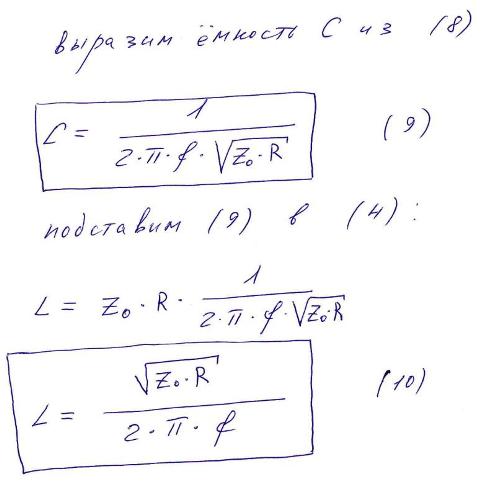 выразим ёмкость С из (8)
C = 1 / (2·π·f·√(Z₀·R)) (9)
подставим (9) в (4):
L = Z₀·R· 1 / (2·π·f·√(Z₀·R))
L = √(Z₀·R) / (2·π·f) (10)